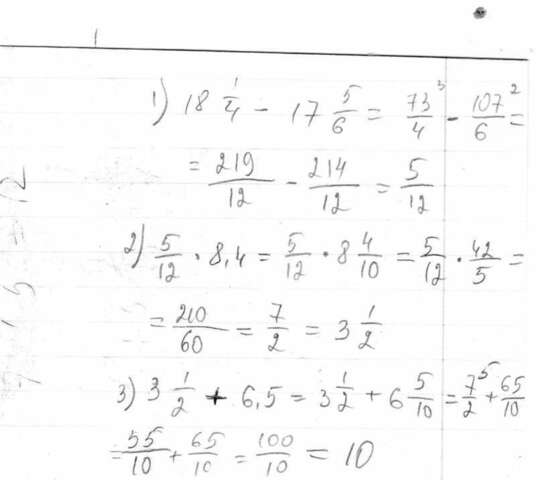 1) 18 1/4 - 17 5/6 = 73/4 ³ - 107/6 ² =
= 219/12 - 214/12 = 5/12
2) 5/12 · 8,4 = 5/12 · 8 4/10 = 5/12 · 42/5 =
= 210/60 = 7/2 = 3 1/2
3) 3 1/2 + 6,5 = 3 1/2 + 6 5/10 = 7/2 ⁵ + 65/10
= 35/10 + 65/10 = 100/10 = 10